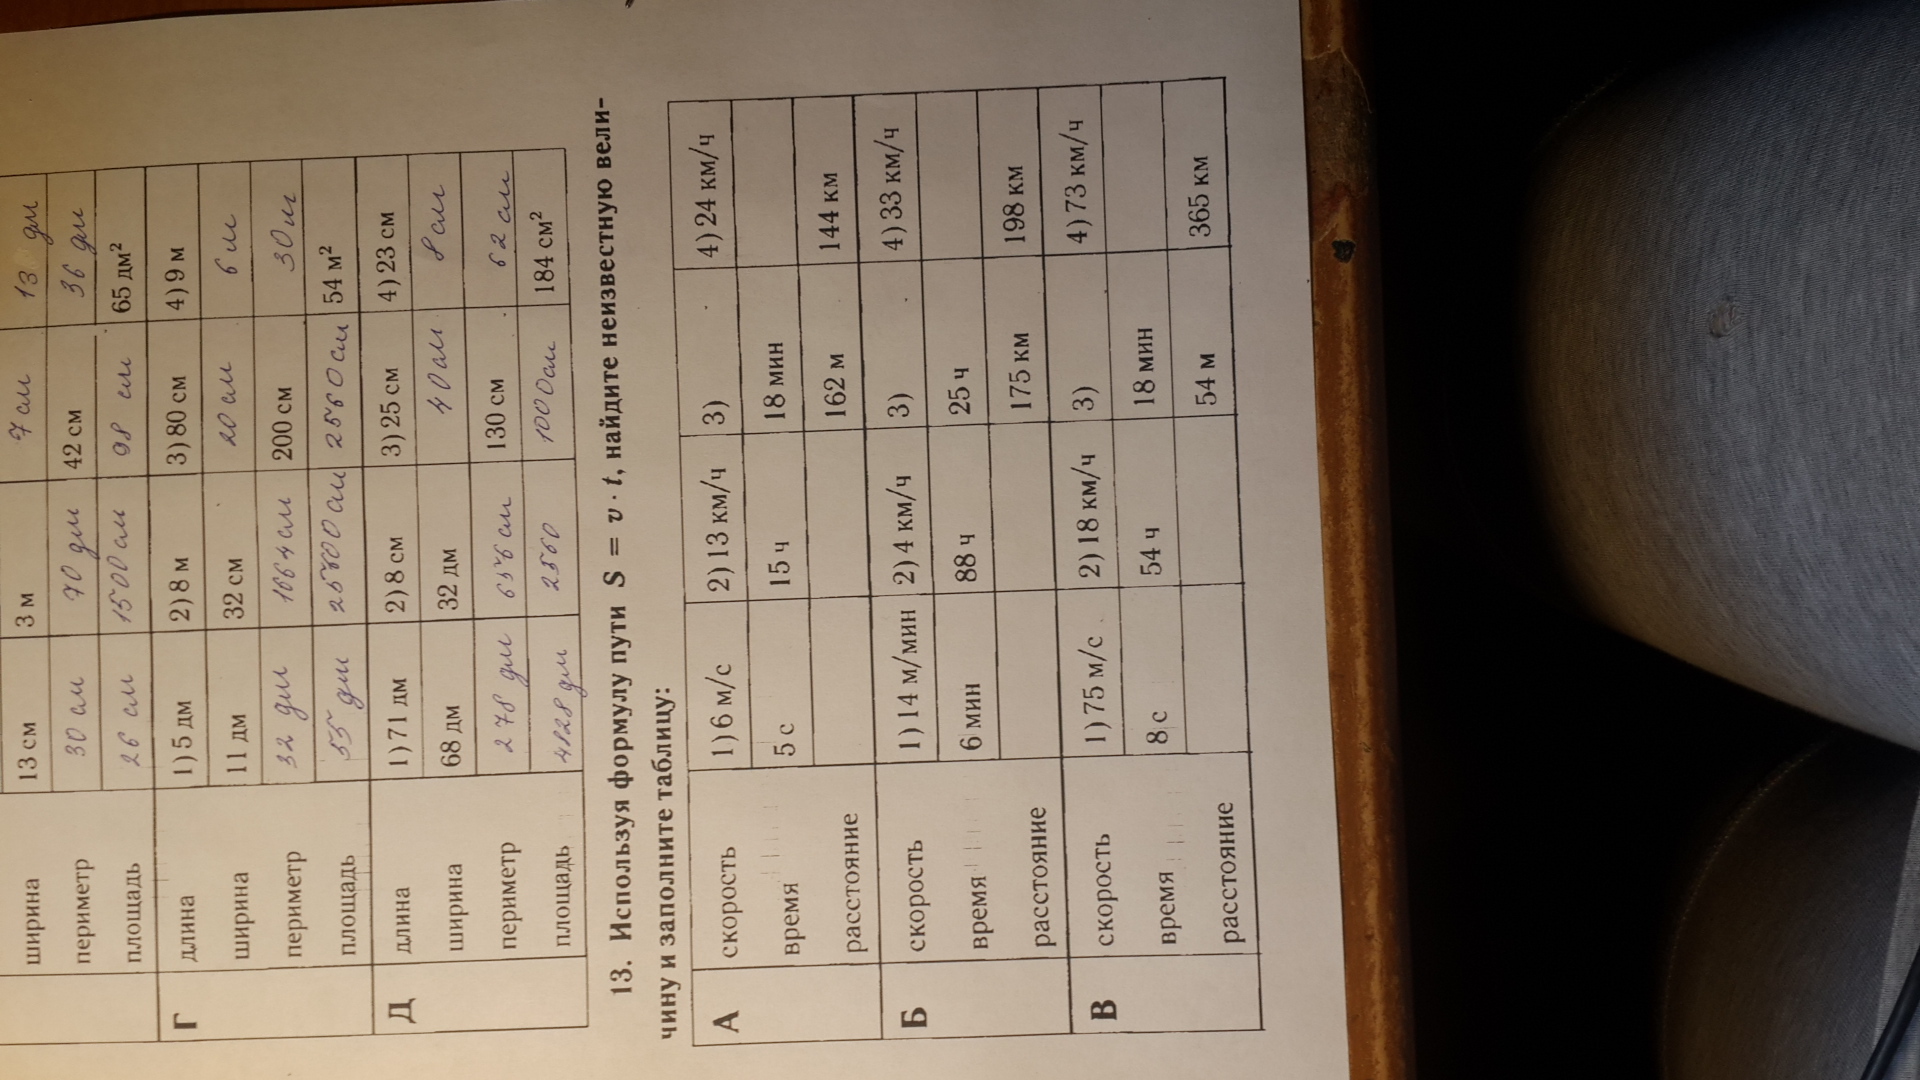 13 см 3 м 7 см 13 дм
ширина
периметр 30 см 70 дм 42 см 36 дм
площадь 26 см 1500 см 98 см 65 дм²
Г длина 1) 5 дм 2) 8 м 3) 80 см 4) 9 м
ширина 11 дм 32 см 20 см 6 м
периметр 32 дм 1664 см 200 см 30 м
площадь 55 дм 25600 см 2560 см 54 м²
Д длина 1) 71 дм 2) 8 см 3) 25 см 4) 23 см
ширина 68 дм 32 дм 40 см 8 см
периметр 278 дм 656 см 130 см 62 см
площадь 4828 дм 2560 1000 см 184 см²
13. Используя формулу пути S = v · t, найдите неизвестную вели-
чину и заполните таблицу:
А скорость 1) 6 м/с 2) 13 км/ч 3) 4) 24 км/ч
время 5 с 15 ч 18 мин
расстояние 162 м 144 км
Б скорость 1) 14 м/мин 2) 4 км/ч 3) 4) 33 км/ч
время 6 мин 88 ч 25 ч
расстояние 175 км 198 км
В скорость 1) 75 м/с 2) 18 км/ч 3) 4) 73 км/ч
время 8 с 54 ч 18 мин
расстояние 54 м 365 км